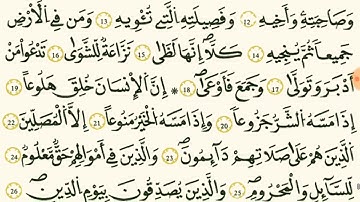 وَصَاحِبَتِهِ وَأَخِيهِ ١٢ وَفَصِيلَتِهِ الَّتِي تُـْٔوِيهِ ١٣ وَمَن فِي الْأَرْضِ
جَمِيعًا ثُمَّ يُنجِيهِ ١٤ كَلَّا إِنَّهَا لَظَىٰ ١٥ نَزَّاعَةً لِّلشَّوَىٰ ١٦ تَدْعُوا مَنْ
أَدْبَرَ وَتَوَلَّىٰ ١٧ وَجَمَعَ فَأَوْعَىٰ ١٨ * إِنَّ الْإِنسَانَ خُلِقَ هَلُوعًا ١٩
إِذَا مَسَّهُ الشَّرُّ جَزُوعًا ٢٠ وَإِذَا مَسَّهُ الْخَيْرُ مَنُوعًا ٢١ إِلَّا الْمُصَلِّينَ ٢٢
الَّذِينَ هُمْ عَلَىٰ صَلَاتِهِمْ دَائِمُونَ ٢٣ وَالَّذِينَ فِي أَمْوَالِهِمْ حَقٌّ مَّعْلُومٌ ٢٤
لِّلسَّائِلِ وَالْمَحْرُومِ ٢٥ وَالَّذِينَ يُصَدِّقُونَ بِيَوْمِ الدِّينِ ٢٦